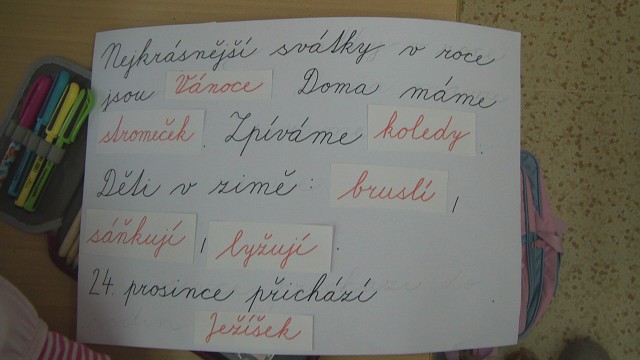 Nejkrásnější svátky v roce
jsou Vánoce Doma máme
stromeček. Zpíváme koledy.
Děti v zimě: bruslí,
sáňkují, lyžují.
24. prosince přichází
Ježíšek